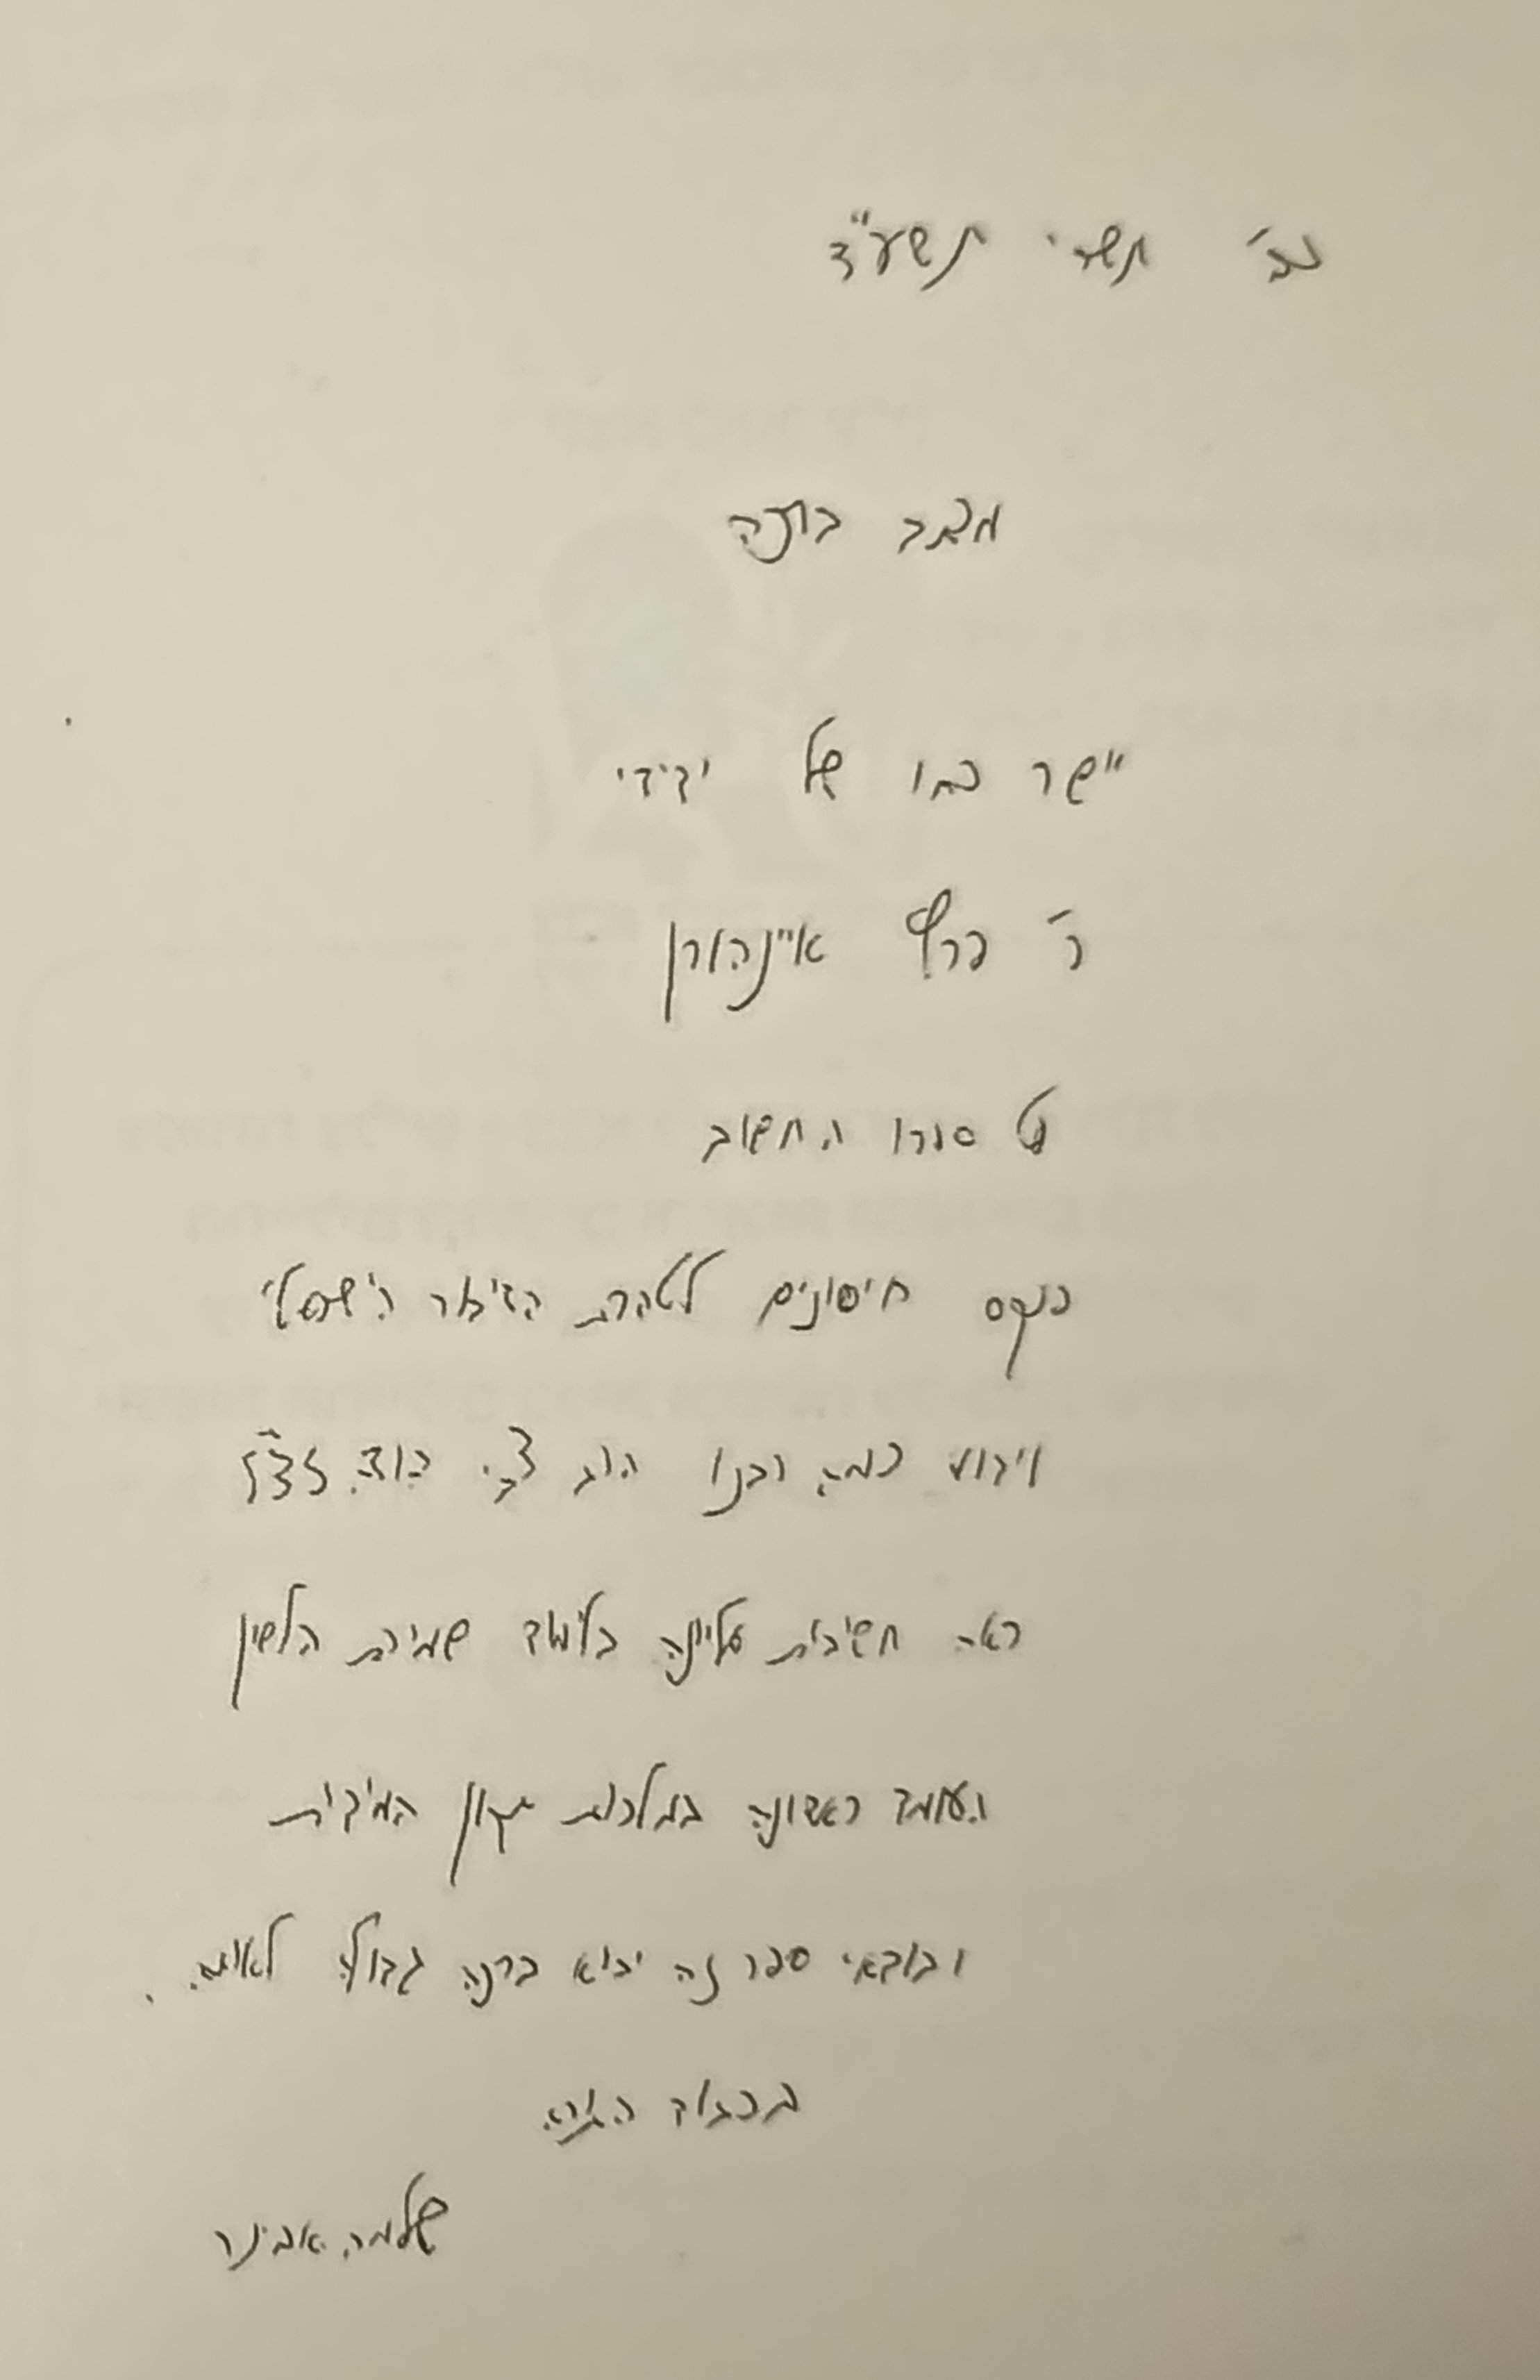 כב' תשרי תשע"ד
מכתב ברכה
יישר כחו של ידידי
ר' ברל איינהורן
על ספרו החשוב
פנקס חיסונים לטהרת הדיבור הישראלי
וידוע כמה רבנו הרב צבי יהודה זצ"ל
ראה חשיבות עליונה בלימוד שמירת הלשון
העומד ראשונה במלאכת תקון המידות
ובודאי ספר זה יביא ברכה גדולה לאומה.
בכבוד התורה
שלמה אבינר